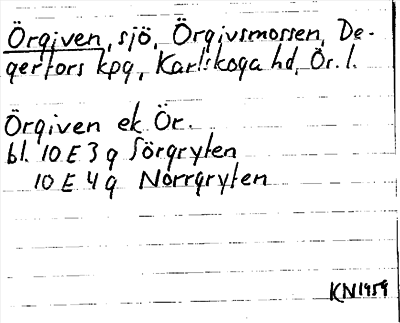 Örgiven, sjö, Örgivsmossen, De-
gerfors kpg, Karlskoga hd, Ör. l.
Örgiven ek Ör.
bl. 10 E 3 g Sörgryten
10 E 4 g Norrgryten
KN 1959